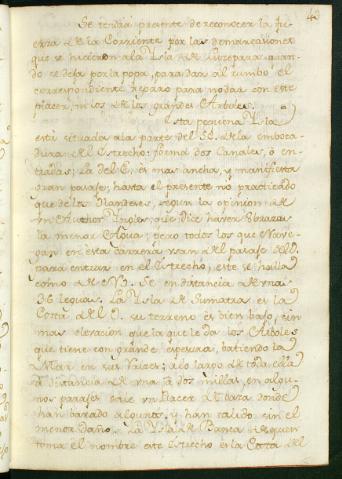 43
Se tendrá presente de reconocer la fu
erza de la Corriente por las demarcaciones
que se hicieron a la Ysla de Lucepara quan
do se deja por la popa, para dar al rumbo el
correspondiente reparo para no dar con este
placer, ni los de los grandes Arboles.
Esta pequeña Ysla
está situada a la parte del SE. de la emboca
dura del Estrecho: forma dos Canales, ó en
tradas; la del E. es mas ancha, y manifiesta
gran paraje, hasta el presente no practicado
que de los Olandeses, segun la opinion de
un Author Yngles, que dice haver brazas
la menor Agua; pero todos los que Nave
gan en esta carrera usan del pasaje del O.
para entrar en el Estrecho, este se halla
como de N.S. en distancia de una
36 leguas. La Ysla de Sumatra es la
Costa del O. su terreno es bien bajo, sin
mas elevacion que la que le dan los Arboles
que tiene con grande espesura, batiendo la
Mar en sus raices; a lo largo de toda ella
a distancia de una a dos millas, en algu
nos parajes sale un placer de bara donde
han barado algunos, y han salido sin el
menor daño. La Ysla de Banca de quien
toma el nombre este Estrecho es la Costa del